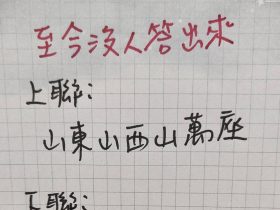 至今沒人答出來
上聯：
山東山西山萬座
下聯：